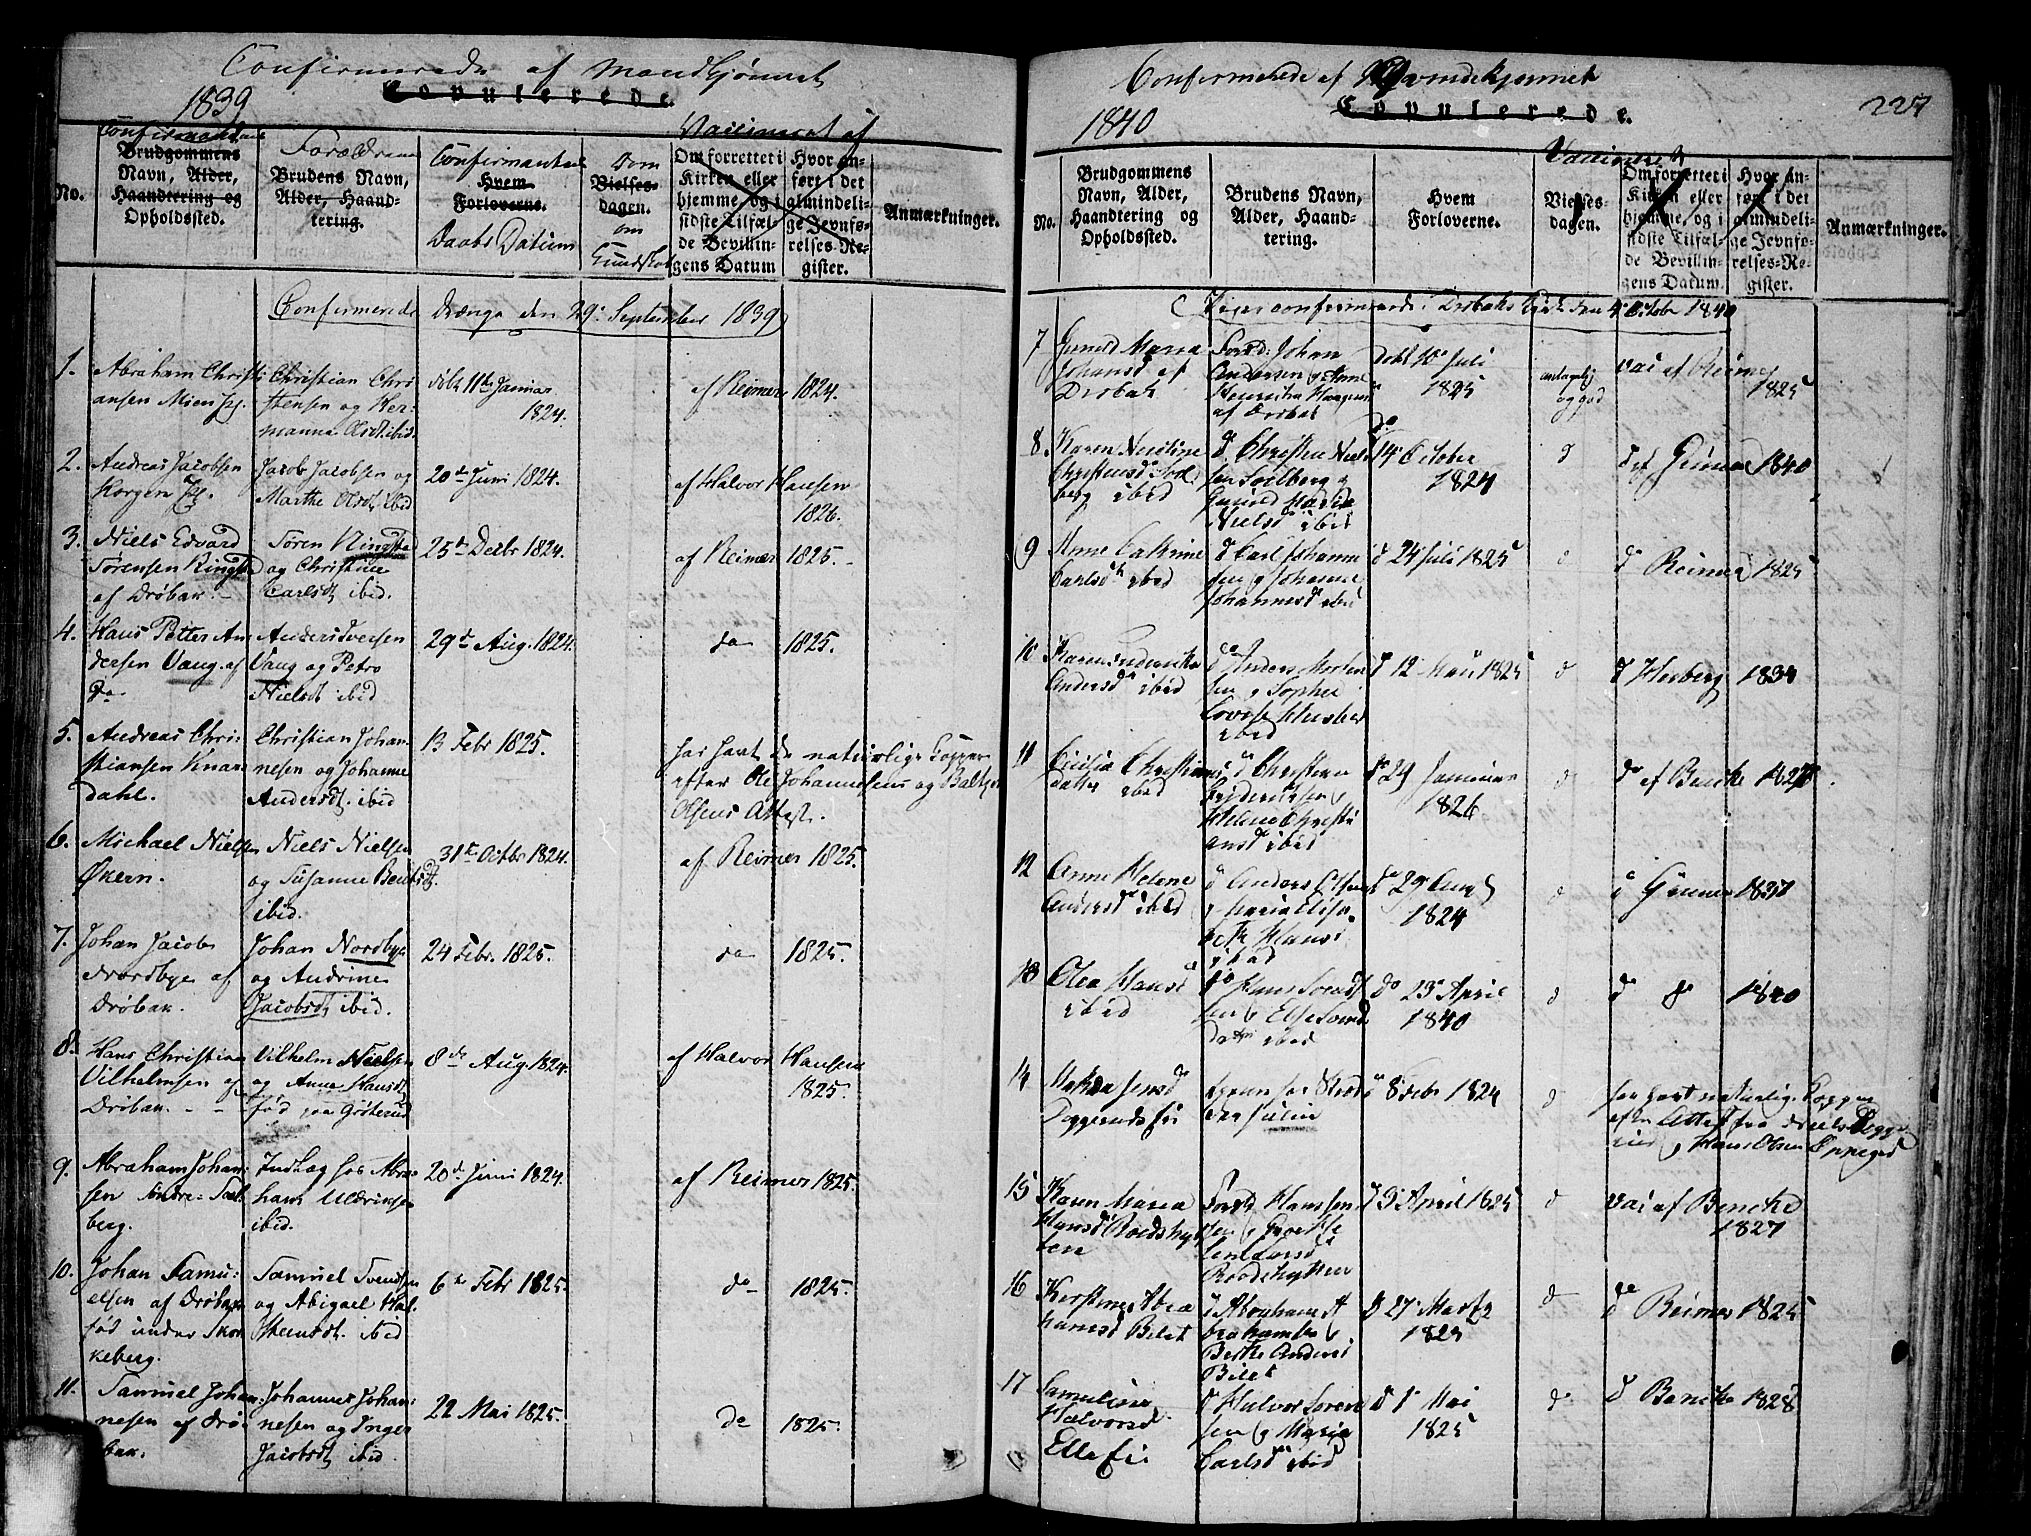 Confirmerede af Mandkjønnet
Copulerede.
1839
No.
Confirmantens
Brudgommens
Navn, Alder,
Haandtering og
Opholdssted.
Forældrene
Brudens Navn,
Alder, Haand-
tering.
Confirmantens
Hvem
Forloverne.
Daabs Datum
Dom
Vielses-
dagen.
om
Kundskab
Vaccineret af
Om forrettet i
Kirken eller
hjemme, og i
sidste Tilfæl-
de Bevillin-
gens Datum
Hvor an-
ført i det
almindeli-
ge Jevnfø-
relses-Re-
gister.
Anmærkninger.
Confirmerede Drenge den 29. September 1839
1.
Abraham Christi
ansen
Christian Chri
stensen og Her-
manna Olsdt. ibid.
døbt 11te Januar
1824.
af Reimer 1824.
2.
Andreas Jacobsen
Korgen
Jacob Jacobsen og
Marthe Olsdt ibid
20de Juni 1824.
af Halvor Hansen
1826.
3.
Niels Edvard
Sørensen Ringsbo
af Drøbak.
Søren Ringsbo
og Christine
Carlsdt ibid.
25de Decbr 1824.
af Reimer 1825.
4.
Hans Petter An
dersen Vaug. af
do.
Anders Iversen
Vaug og Petro
Nielsdt ibid
29de Aug. 1824.
do 1825.
5.
Andreas Chri
stiansen Knar
dahl.
Christian Johan
nesen og Johanne
Andersdt. ibid
13 Febr 1825.
har havt de naturlige Kopper
efter Ole Johannesens og Baltzer
Olsens Attest.
6.
Michael Nielsen
Økern.
Niels Nielsen
og Susanne Bentsdt.
ibid.
31te Octbr 1824.
af Reimer 1825.
7.
Johan Jacob
Nordbye af
Drøbak.
Johan Nordbye
og Andrine
Jacobsdt ibid.
24 Febr. 1825.
do 1825.
8.
Hans Christian
Vilhelmsen af
Drøbak.
Vilhelm Nielsen
og Anne Hansdt
fød paa Gøterud
8de Aug. 1824.
af Halvor Hansen
1825.
9.
Abraham Johan-
sen
berg.
Indlag hos Abra
ham Uldriksen
ibid.
20de Juni 1824.
af Reimer 1825.
10.
Johan Samu-
elsen af Drøbak
fød under Skor
keberg.
Samuel Svendsen
og Abigael Hal
steensdt. ibid
6te Febr 1825.
do 1825.
11.
Samuel Johan-
nesen af Drø-
bak.
Johannes Johan-
nesen og Inger
Jacobsdt ibid.
22 Mai 1825.
do 1825.
Confirmerede af Qvindekjønnet
Copulerede.
227
1840
No.
Brudgommens
Navn, Alder,
Haandtering og
Opholdssted.
Brudens Navn,
Alder, Haand-
tering.
Hvem
Forloverne.
Vielses-
dagen.
Vaccineret
Om forrettet i
Kirken eller
hjemme, og i
sidste Tilfæl-
de Bevillin-
gens Datum.
Hvor an-
ført i det
almindeli-
ge Jevnfø-
relses-Re-
gister.
Anmærkninger.
Piger confirmerede i Drøbaks Kirke den 4 October 1840
7
Gunild Maria
Johansd af
Drøbak
Foræld: Johan
Andersen og Anne
af Drøbak
Døbt 10 Juli
1825
og god
vac af Reimer
1825
8
Karen
berg ibid
do Christen Niel
sen Solberg og
Gunild Maria
Nielsd ibid
do 14 October
1824
d
do af Greiner 1840
9
Anne Cathrine
Carlsd ibid
do Carl Johanne
sen og Johanne
Johannesd ibid
d 24 Juli 1825
d
do Reimer 1825
10
Karen Andrikke
Andersd ibid
do Anders Morten
sen og Sophie
Lovise
ibid
d 12 Mai 1825
d
d Herberg 1834
11
Cicilia Christian
datter ibid
d Christian
Frideriksen og
Helene Christi
ansd ibid
do 29 Januar
1826
d
do af Bencke
12
Anne Helene
Andersd ibid
d Anders Olsen
og Maria Elisa
beth Hansd
ibid
do 29 Aug
1824
d
d Greiner 1837
13
Olea Hansd
ibid
do Hans Svend
sen og Else Svends
datter ibid
do 23 April
1840
d
do do 1840
14
Jensd
d 8 Febr 1824
d
har havt naturlige Kopper
efter Attest fra Niels
og Hans Olsen Eppegod
15
Karen Maria
Hansd Roedshyt
ten
Foræld Hans Jen
sen og
Roedshytten
d 3 April 1825
d
vac af Bencke
1827
16
Kirstine Abra
hamsd Bilet
d Abraham A
brahams og
Berthe Andersd
Bilet
d 27 Martz
1825
d
do Reimer 1825
17
Samueline
Halvorsd.
Ellefsi
d Halvor Soren
sen og Maria
Carlsd ibid
d 1 Mai
1825
d
d Bencke 1828